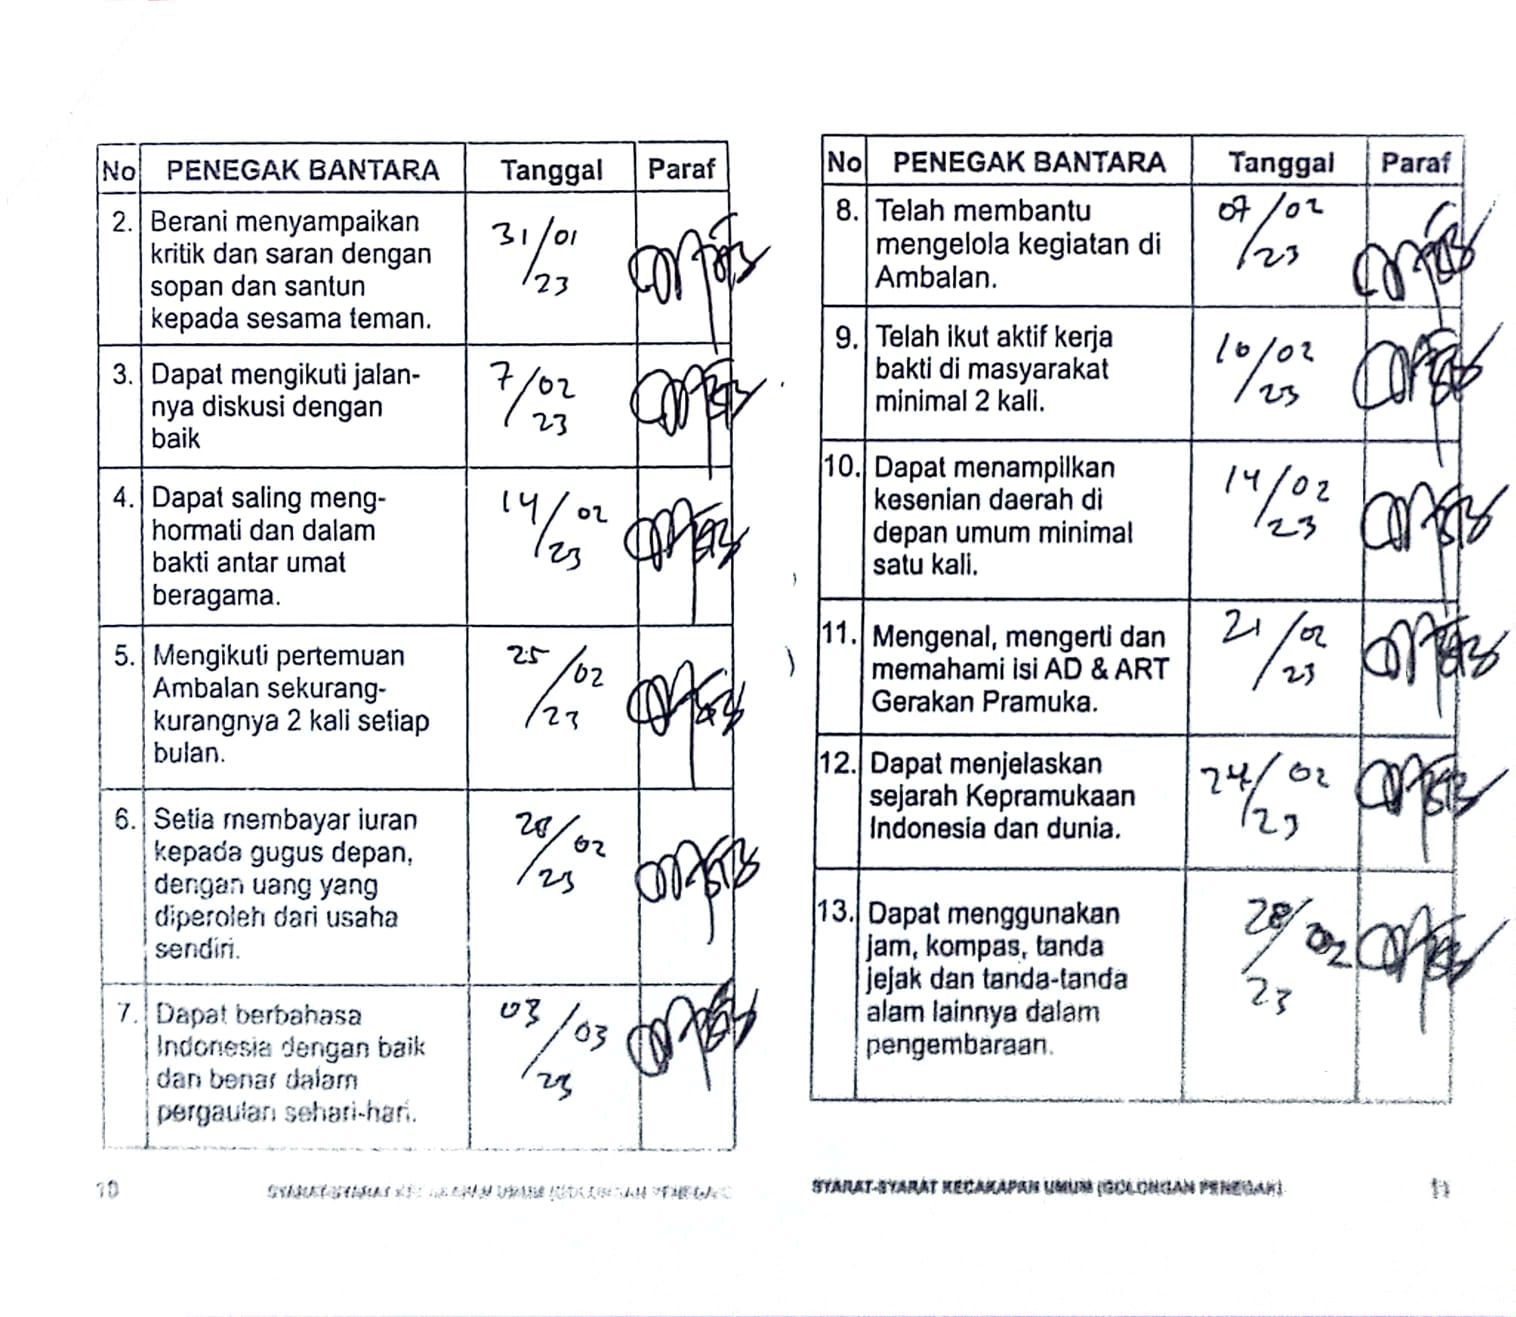 No PENEGAK BANTARA Tanggal Paraf
2. Berani menyampaikan
kritik dan saran dengan
sopan dan santun
kepada sesama teman.
31/01
/23
3. Dapat mengikuti jalan-
nya diskusi dengan
baik
7/02
/23
4. Dapat saling meng-
hormati dan dalam
bakti antar umat
beragama.
14/02
/23
5. Mengikuti pertemuan
Ambalan sekurang-
kurangnya 2 kali setiap
bulan.
25/02
/23
6. Setia membayar iuran
kepada gugus depan,
dengan uang yang
diperoleh dari usaha
sendiri.
28/02
/23
7. Dapat berbahasa
Indonesia dengan baik
dan benar dalam
pergaulan sehari-hari.
03/03
/23
10
No PENEGAK BANTARA Tanggal Paraf
8. Telah membantu
mengelola kegiatan di
Ambalan.
07/02
/23
9. Telah ikut aktif kerja
bakti di masyarakat
minimal 2 kali.
10/02
/23
10. Dapat menampilkan
kesenian daerah di
depan umum minimal
satu kali.
14/02
/23
11. Mengenal, mengerti dan
memahami isi AD & ART
Gerakan Pramuka.
21/02
/23
12. Dapat menjelaskan
sejarah Kepramukaan
Indonesia dan dunia.
24/02
/23
13. Dapat menggunakan
jam, kompas, tanda
jejak dan tanda-tanda
alam lainnya dalam
pengembaraan.
28/02
/23
SYARAT-SYARAT KECAKAPAN UMUM (GOLONGAN PENEGAK) 11